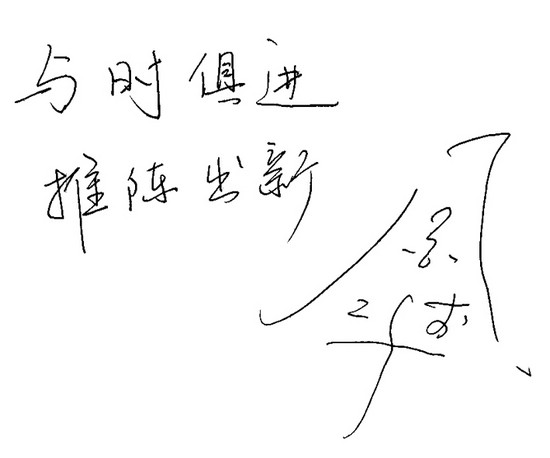 与时俱进
推陈出新